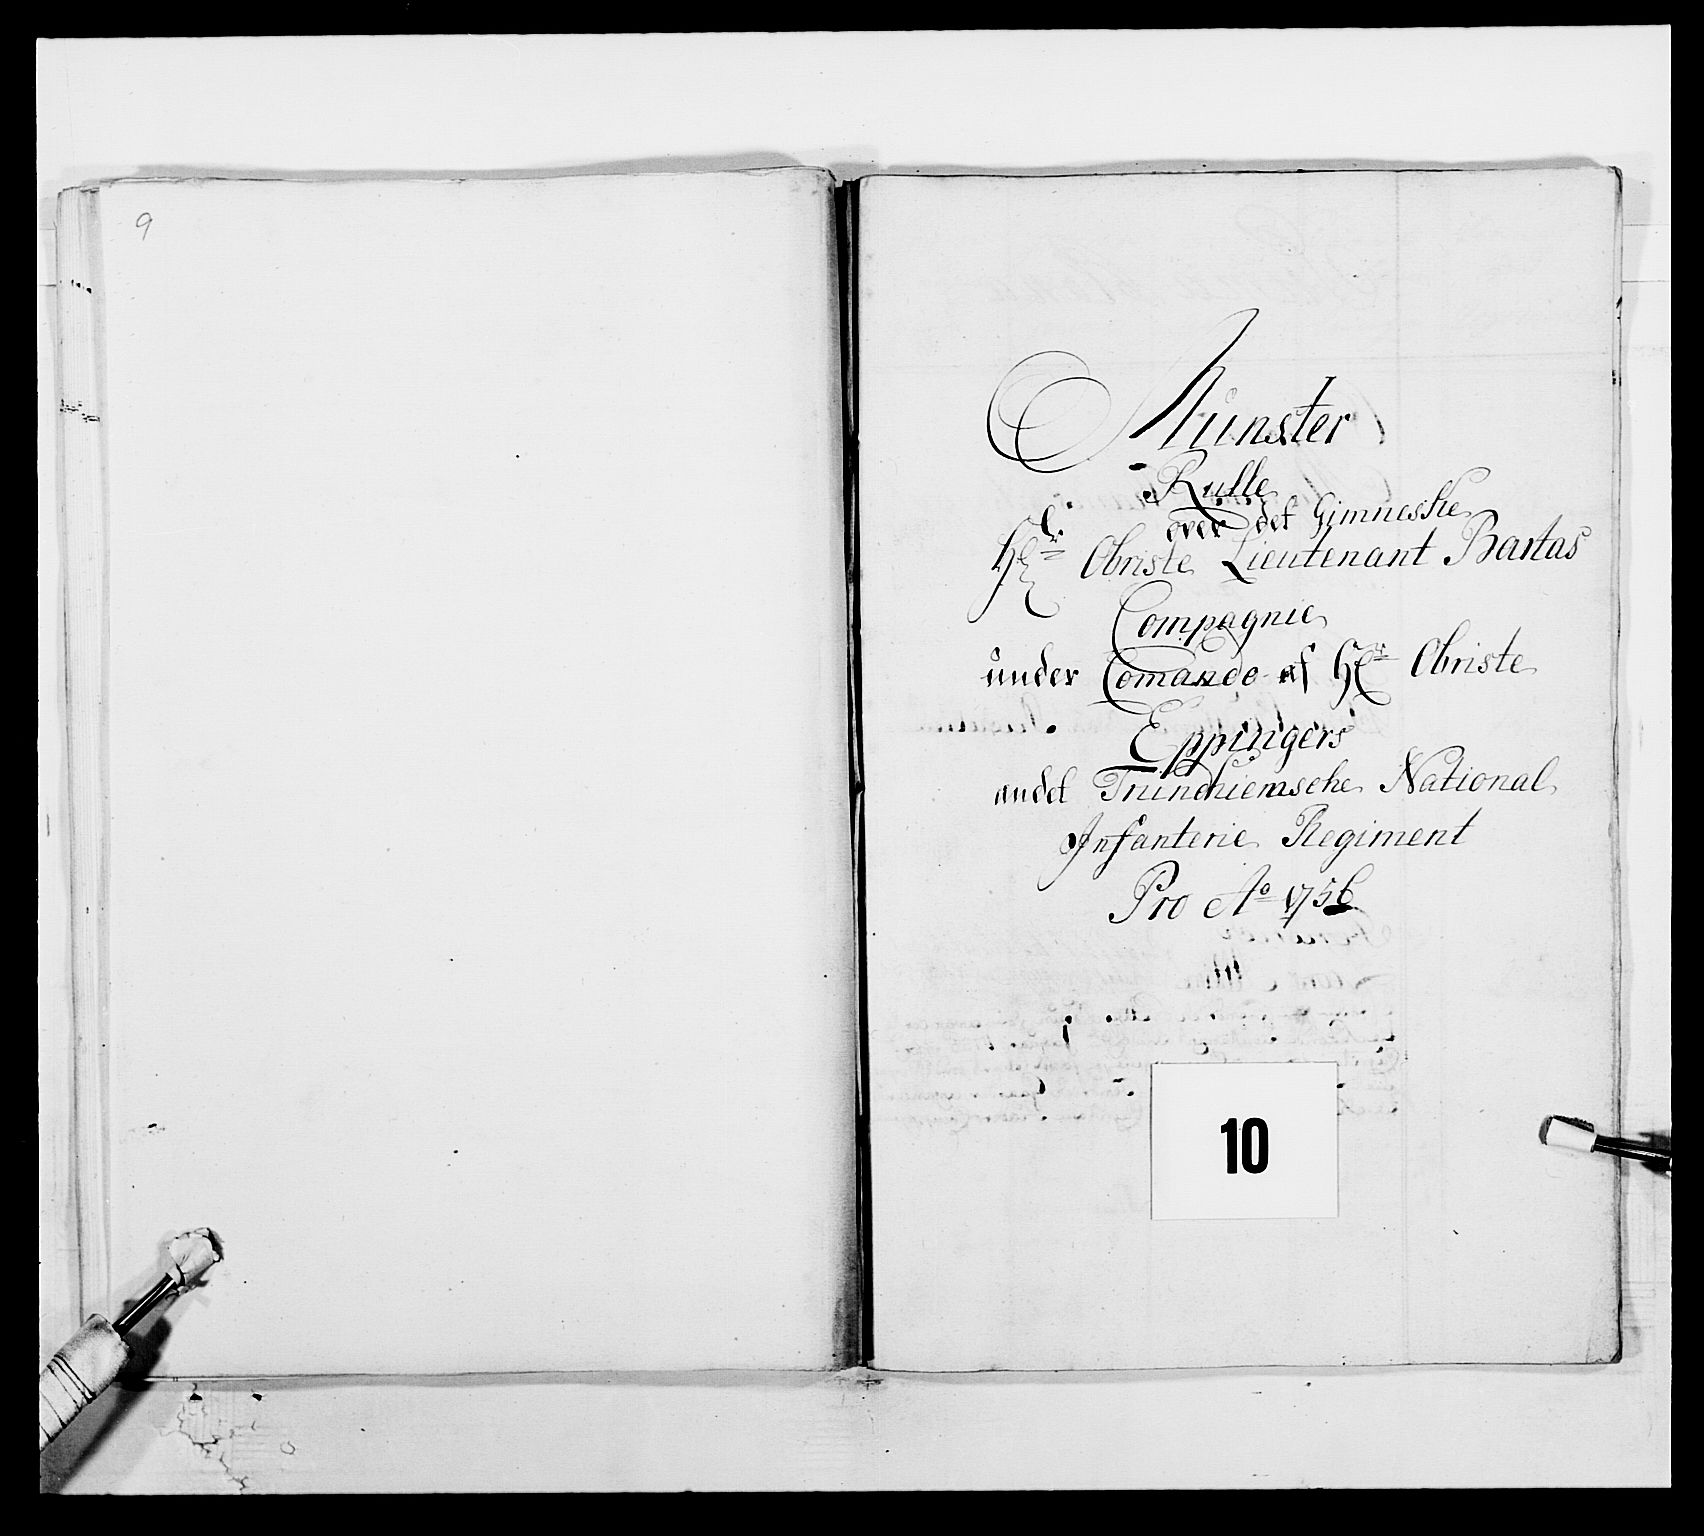 9
Munster
Rulle
over det Gimneske
Hr Obriste Lieutenant Bartas
Compagnie
under Comando af Hr Obriste
Eppingers
andet Trundhiemsche National
Infanterie Regiment
Pro Ao 1756
10